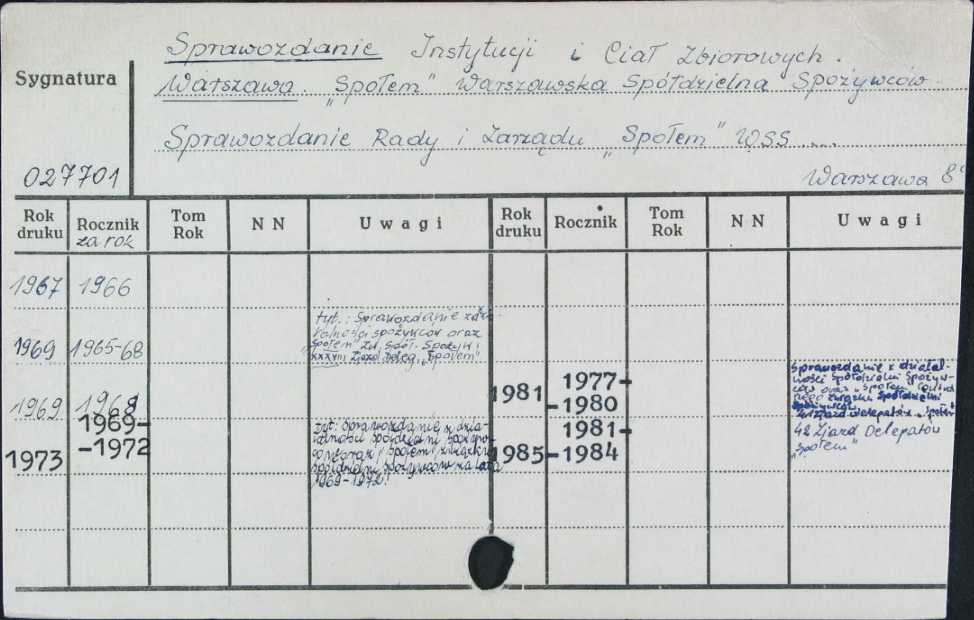 Sprawozdanie Instytucji i Ciał Zbiorowych.
Sygnatura
Warszawa. "Społem" Warszawska Spółdzielnia Spożywców
Sprawozdanie Rady i Zarządu "Społem" WSS ....
027701
Warszawa 8°
Rok druku Rocznik za rok Tom Rok N N Uwagi Rok druku Rocznik Tom Rok N N Uwagi
1967 1966
tyt.: Sprawozdanie z
spożywców oraz
1969 1965-68
"Społem" Zw. Spół. Spożyw. i
XXXVIII Zjazd Deleg. "Społem"
1969 1968
1973 1969-
-1972
tyt: Sprawozdanie z dzia
łalności spółdzielni spożyw
ców oraz "Społem" związku
spółdzielni spożywców za lata
1969-1972!
1981 1977-
-1980
Sprawozdanie z działal-
ności Spółdzielni Spożyw-
ców oraz "Społem"
Związku Spółdzielni
Spożywców.
Zjazd delegatów "Społem"
1985 1981-
-1984
42 Zjazd Delegatów
"Społem"